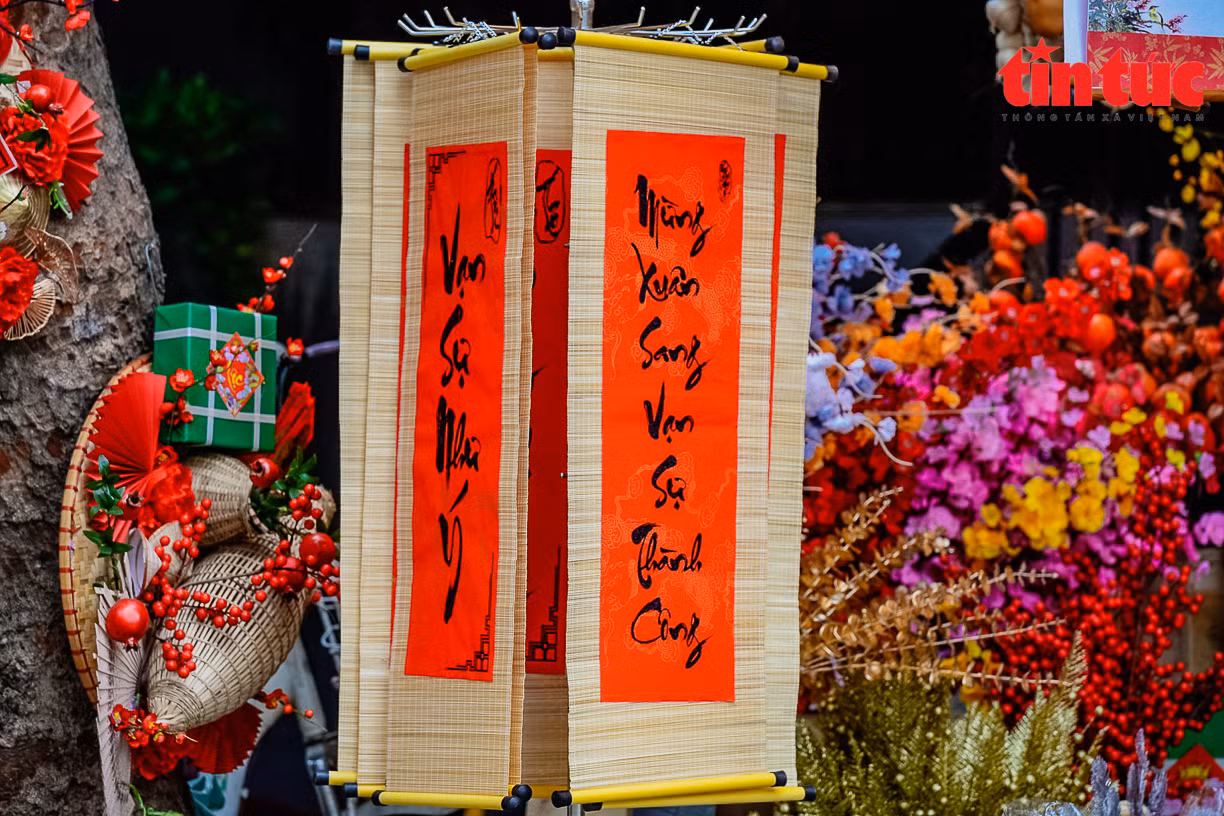 tin tức
THÔNG TẤN XÃ VIỆT NAM
Vạn
Sự
Như
Ý
Mừng
Xuân
Sang
Vạn
Sự
Thành
Công